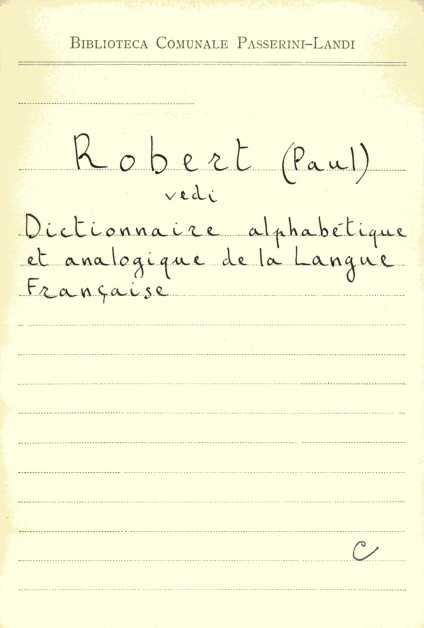 Biblioteca Comunale Passerini-Landi
Robert (Paul)
vedi
Dictionnaire alphabétique
et analogique de la Langue
Française
C